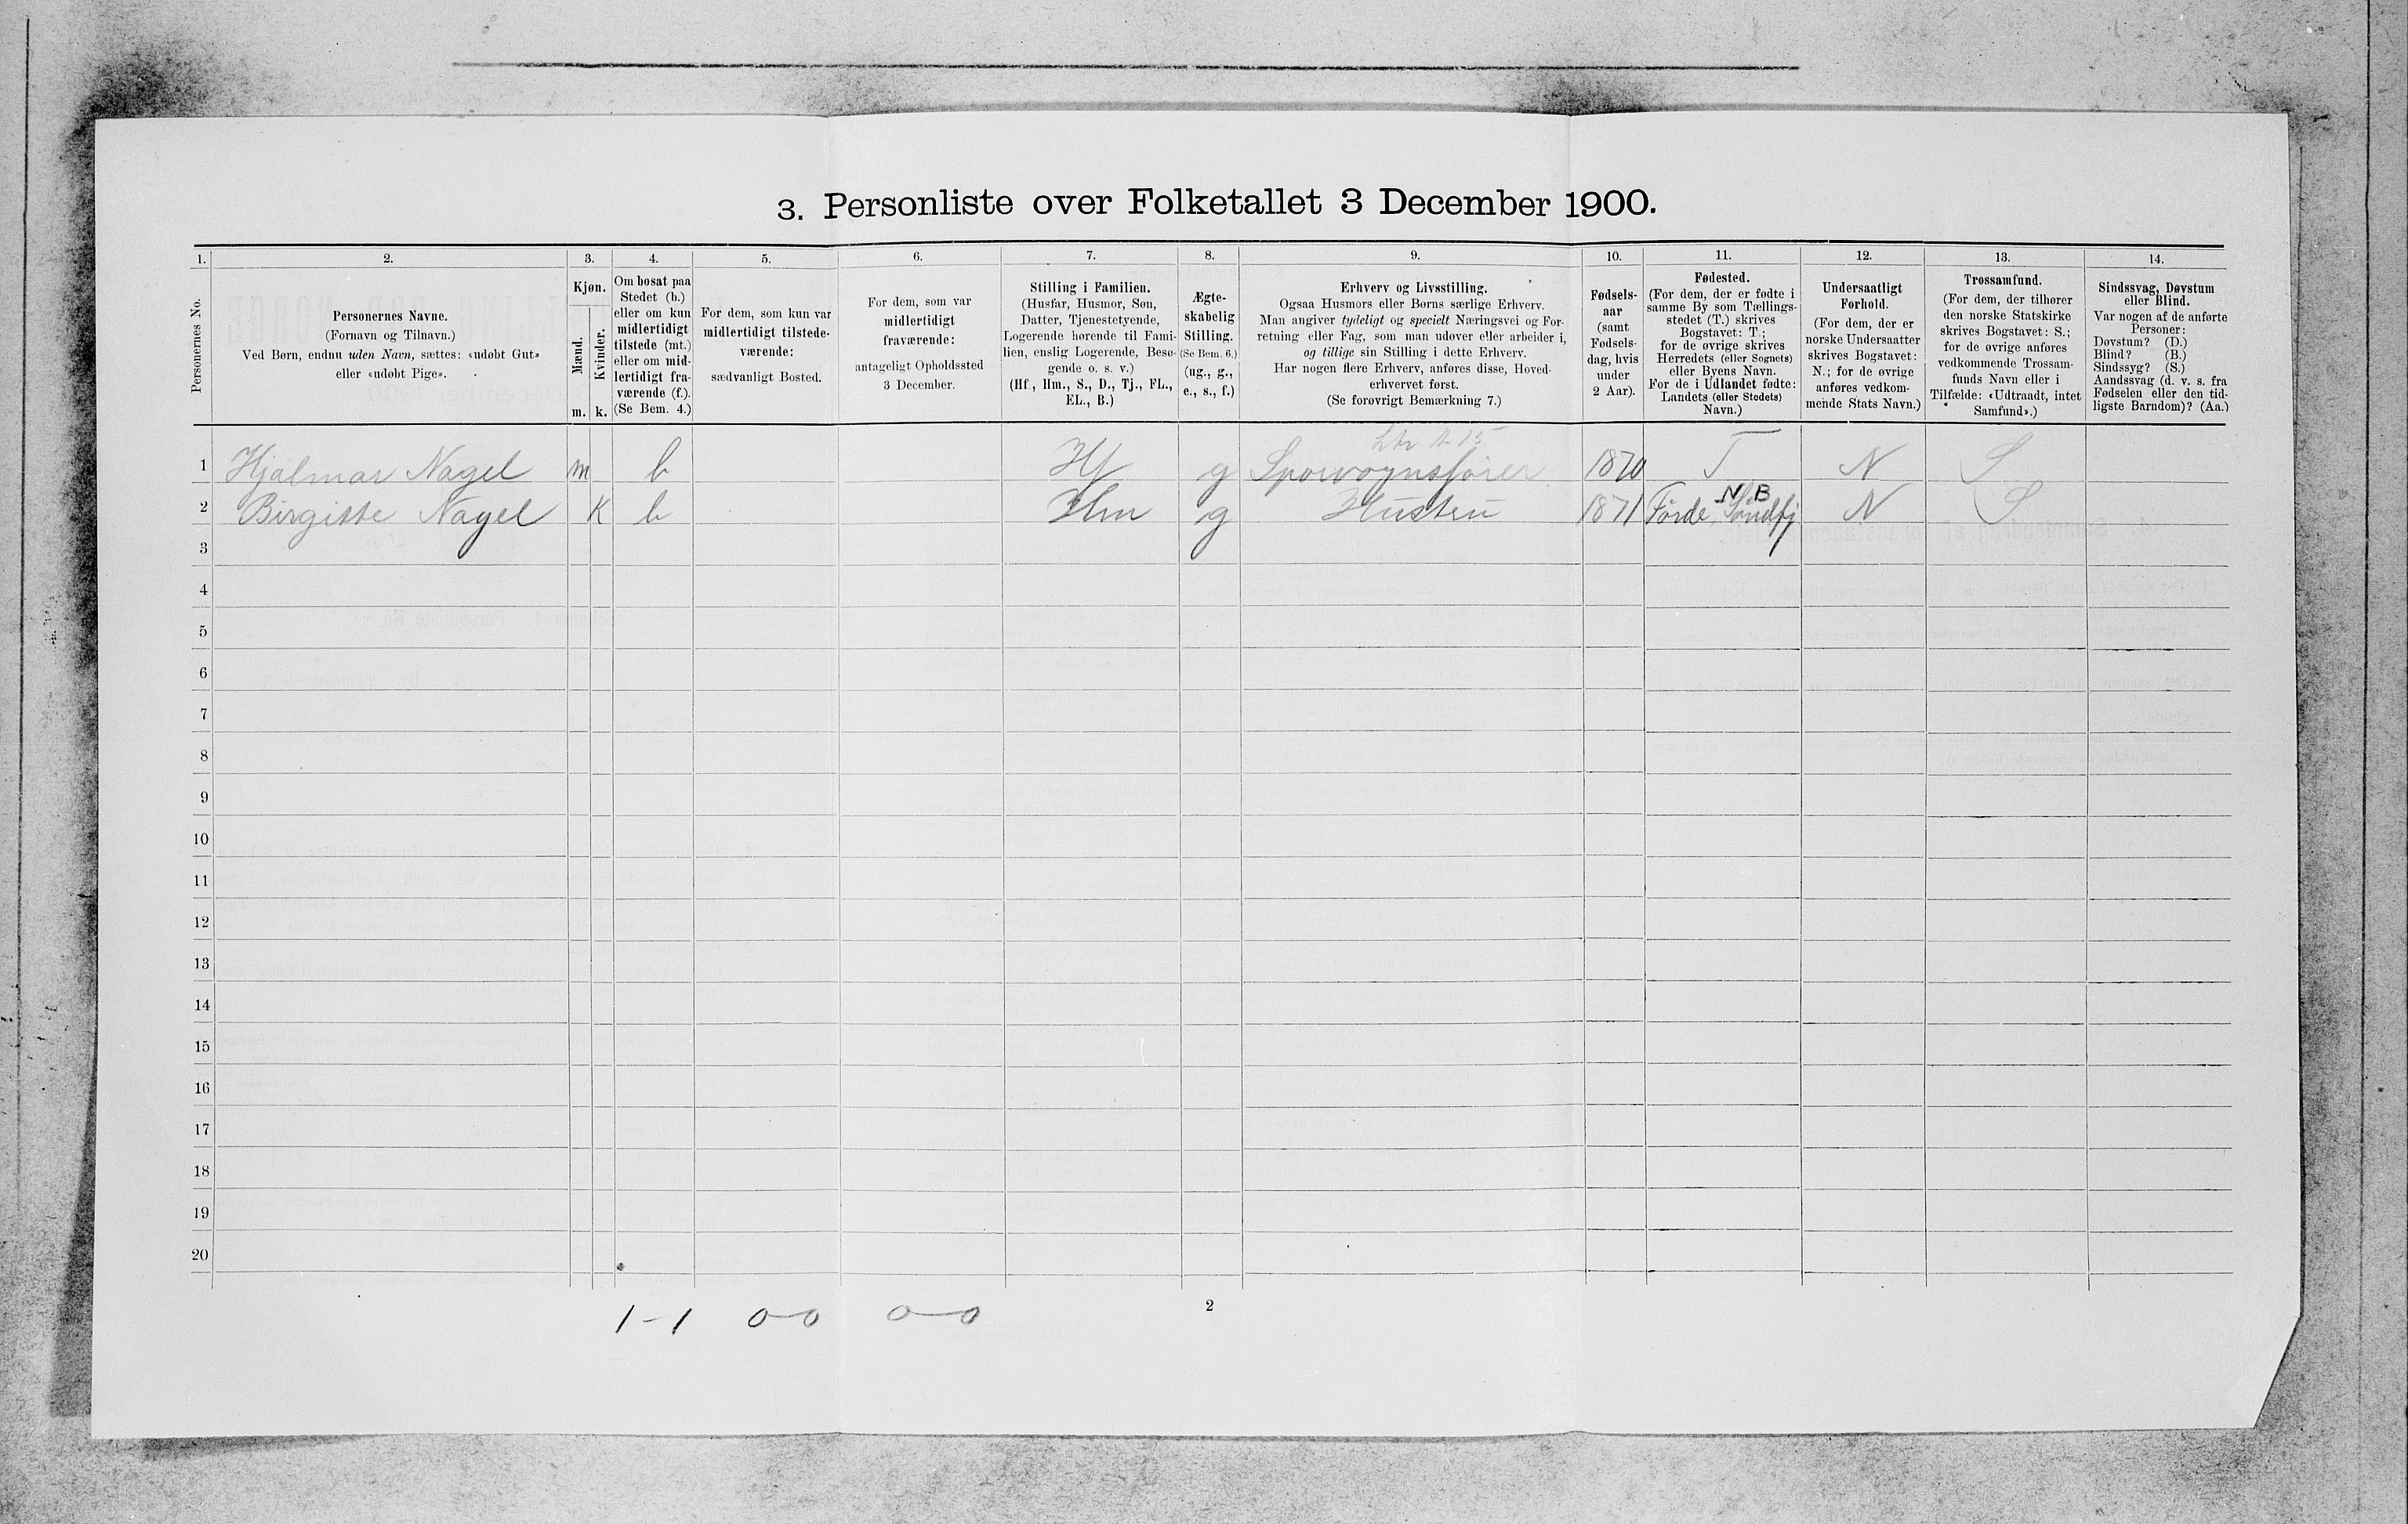 3. Personliste over Folketallet 3 December 1900.
1. 2. 3. 4. 5. 6. 7. 8. 9. 10. 11. 12. 13. 14.
Personernes No.
Personernes Navne.
(Fornavn og Tilnavn.)
Ved Børn, endnu uden Navn, sættes: «udøbt Gut»
eller «udøbt Pige».
Kjøn.
Mænd.
Kvinder.
m. k.
Om bosat paa
Stedet (b.)
eller om kun
midlertidigt
tilstede (mt.)
eller om mid-
lertidigt fra-
værende (f.).
(Se Bem. 4.)
For dem, som kun var
midlertidigt tilstede-
værende:
sædvanligt Bosted.
For dem, som var
midlertidigt
fraværende:
antageligt Opholdssted
3 December.
Stilling i Familien.
(Husfar, Husmor, Søn,
Datter, Tjenestetyende,
Logerende hørende til Fami-
lien, enslig Logerende, Besø-
gende o. s. v.)
(Hf, Hm., S., D., Tj., FL.,
EL., B.)
Ægte-
skabelig
Stilling.
(Se Bem. 6.)
(ug., g.,
e., s., f.)
Erhverv og Livsstilling.
Ogsaa Husmors eller Børns særlige Erhverv.
Man angiver tydeligt og specielt Næringsvei og For-
retning eller Fag, som man udøver eller arbeider i,
og tillige sin Stilling i dette Erhverv.
Har nogen flere Erhverv, anføres disse, Hoved-
erhvervet først.
(Se forøvrigt Bemærkning 7.)
Fødsels-
aar
(samt
Fødsels-
dag, hvis
under
2 Aar).
Fødested.
(For dem, der er fødte i
samme By som Tællings-
stedet (T.) skrives
Bogstavet: T;
for de øvrige skrives
Herredets (eller Sognets)
eller Byens Navn.
For de i Udlandet fødte:
Landets (eller Stedets)
Navn.)
Undersaatligt
Forhold.
(For dem, der er
norske Undersaatter
skrives Bogstavet:
N.; for de øvrige
anføres vedkom-
mende Stats Navn.)
Trossamfund.
(For dem, der tilhører
den norske Statskirke
skrives Bogstavet: S.;
for de øvrige anføres
vedkommende Trossam-
funds Navn eller i
Tilfælde: «Udtraadt, intet
Samfund».)
Sindssvag, Døvstum
eller Blind.
Var nogen af de anførte
Personer:
Døvstum? (D.)
Blind? (B.)
Sindssyg? (S.)
Aandssvag (d. v. s. fra
Fødselen eller den tid-
ligste Barndom)? (Aa.)
1 Hjalmar Nagel m b Hf g Sporvognsfører 1870 T N S
N B
2 Birgitte Nagel K b Hm g Hustru 1871 Førde, Søndfj N S
3
4
5
6
7
8
9
10
11
12
13
14
15
16
17
18
19
20
1-1 0-0 0-0
2